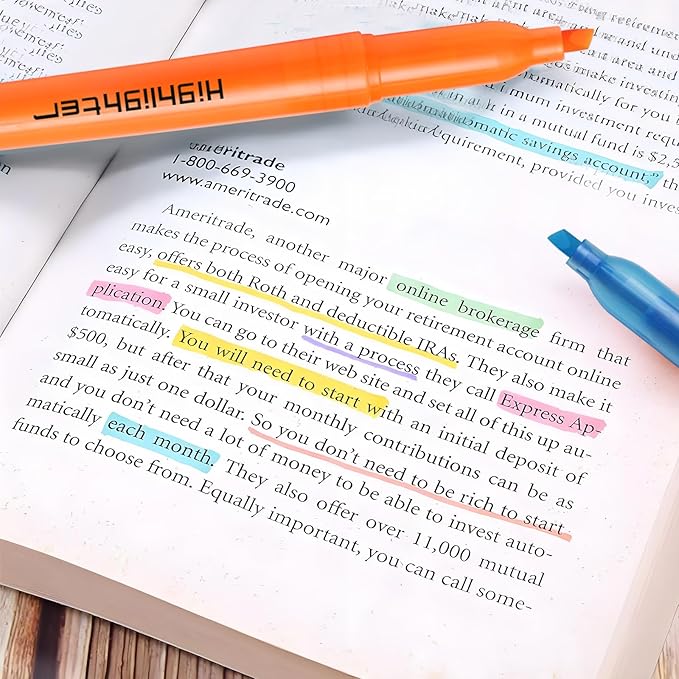 Highlighter
area and
make investing
omatically for you
mum investment requ
in a mutual fund is $2,5
omatic savings account," th
quirement, provided you inves
ameritrade
1-800-669-3900
www.ameritrade.com
Ameritrade, another major online brokerage firm that
makes the process of opening your retirement account online
easy, offers both Roth and deductible IRAs. They also make it
easy for a small investor with a process they call Express Ap-
plication. You can go to their web site and set all of this up au-
tomatically. You will need to start with an initial deposit of
$500, but after that your monthly contributions can be as
small as just one dollar. So you don't need to be rich to start
and you don't need a lot of money to be able to invest auto-
matically each month. They also offer over 11,000 mutual
funds to choose from. Equally important, you can call some-